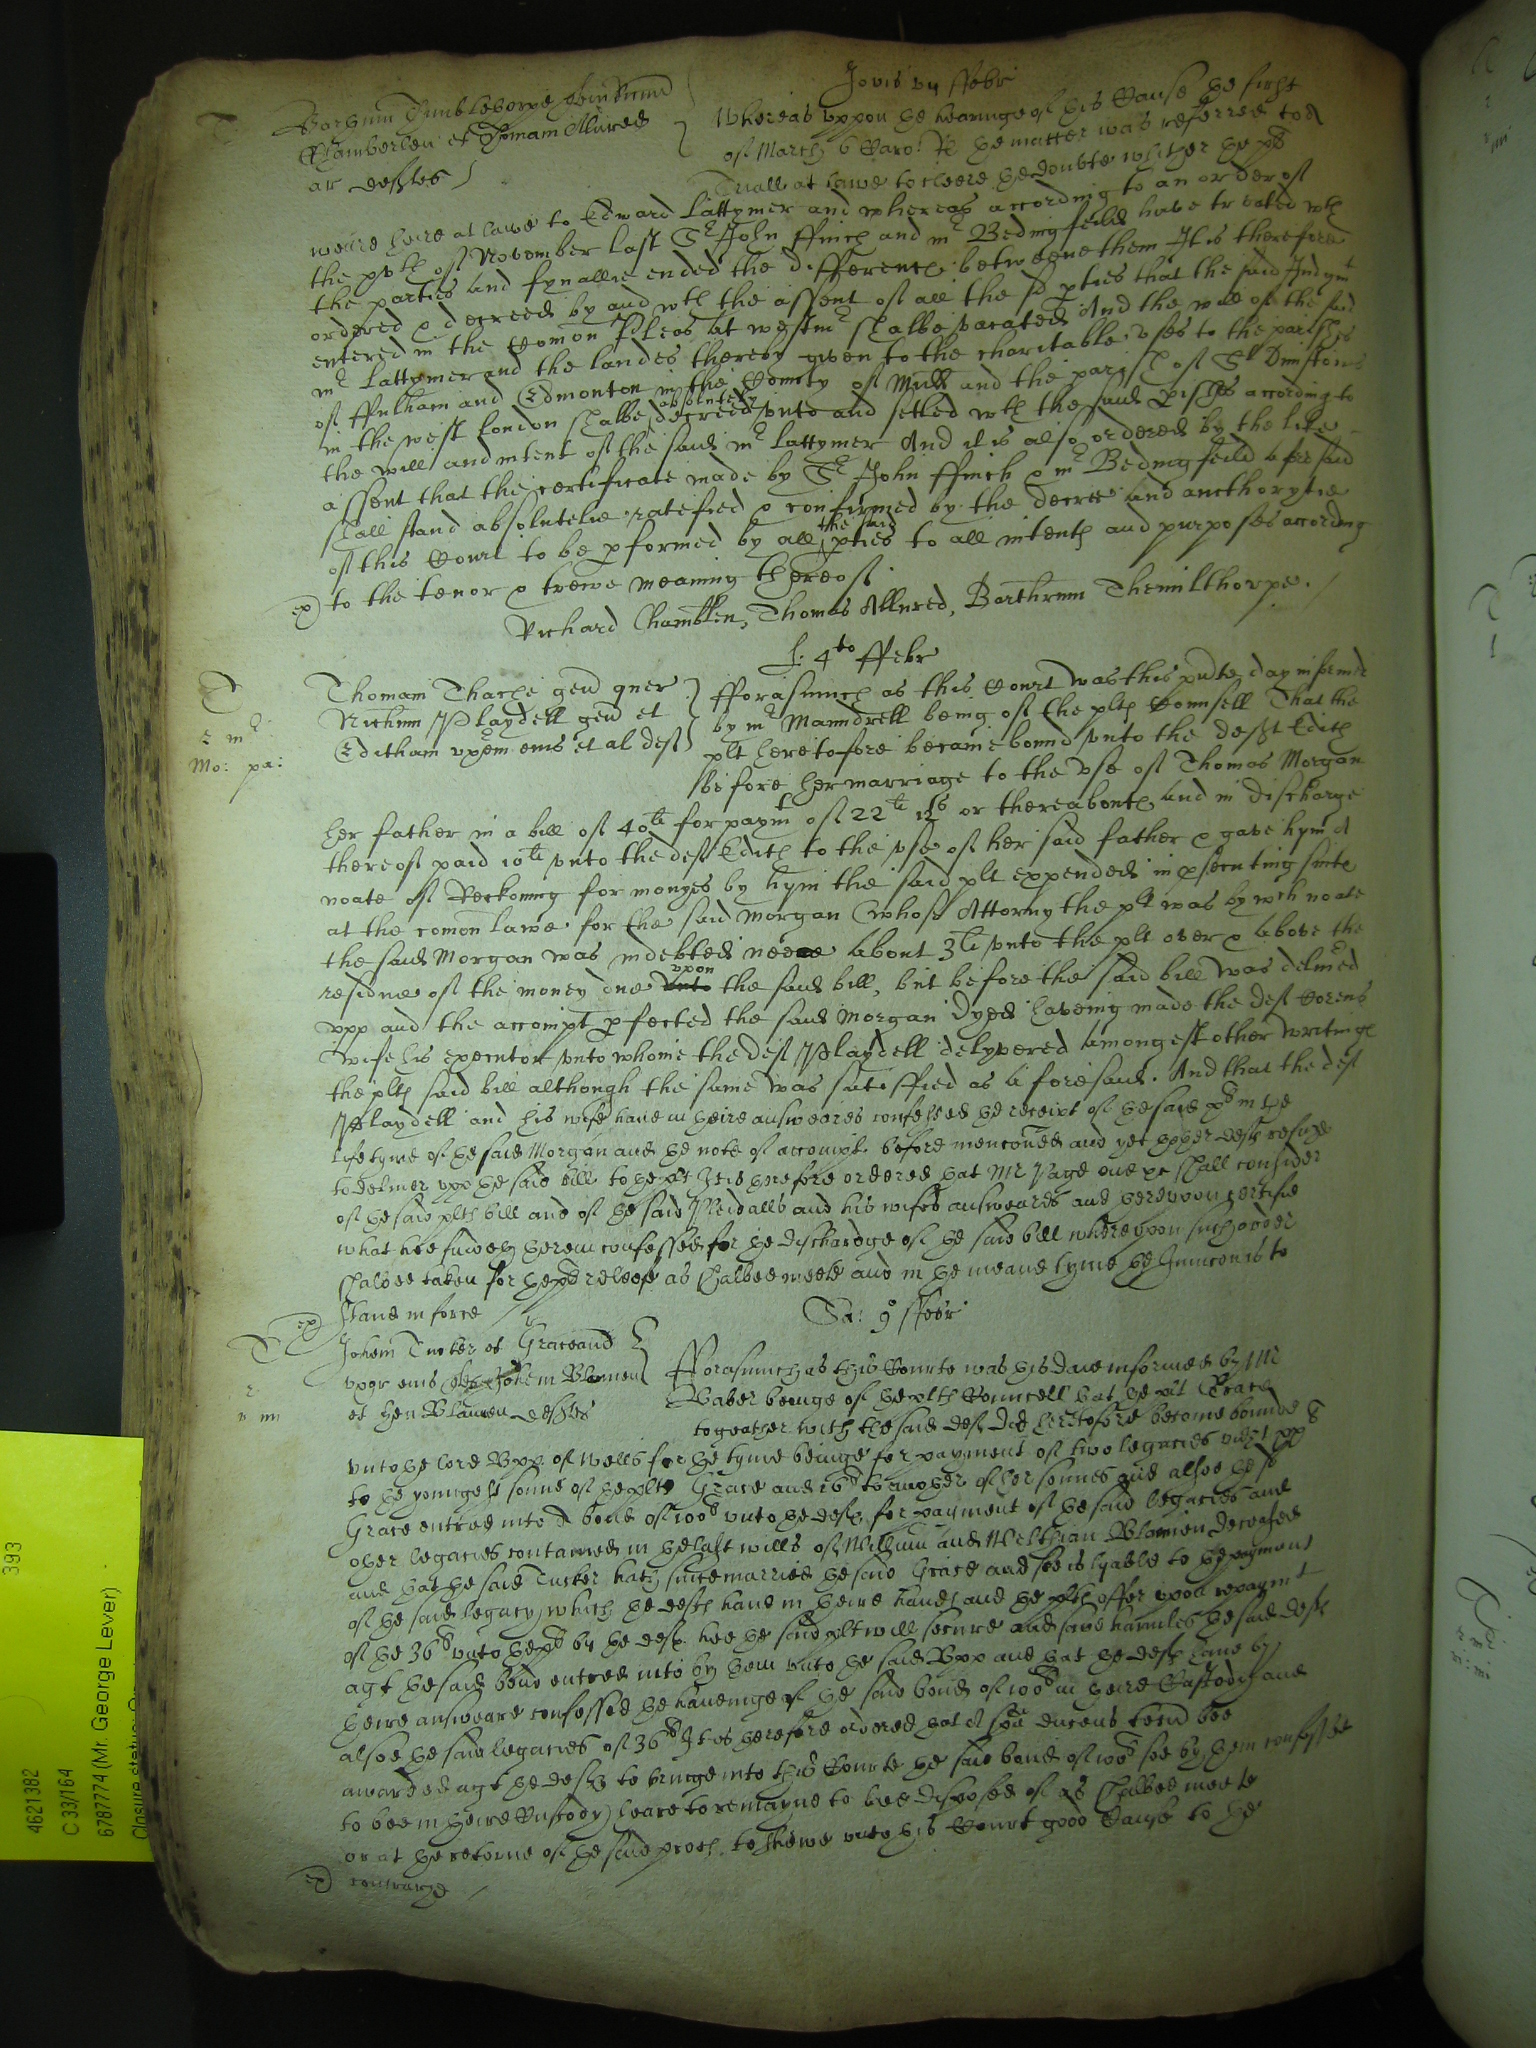 Jovis vii ffebr
T
Barthrum Thimblethorpe Richardum
Chamberlen et Thomam Allured
ar deftes
Whereas vppon the hearinge of this Cause the first
of March 6 Caroi Rs the matter was referred to a
Triall at lawe to cleere the doubte whither the pts
weire heire at lawe to Edward Lattymer and whereas according to an order of
the xvth of November last Sr John ffinch and mr Bedingfeild have treated wth
the parties and fynallie ended the differencs betweene them It is therefore
ordered & decreed by and wth the assent of all the sd pties that the said Judgmt
entered in the Comon Pleas at westmr shalbe vacated And the will of the said
mr Lattymer and the landes thereby given to the charitable vses to the parishes
of ffulham and Edmonton in the County of Midd and the parish of St Dunstons
in the west london shalbe absolutely decreed vnto and setled wth the said pishes according to
the will and intent of the said mr Lattymer And it is also ordered by the like
assent that the certificate made by Sr John ffinch & mr Bedingfeild aforesaid
shall stand absolutelie ratefied & confirmed by the decree and aucthorytie
of this Court to be pformed by all the said pties to all intents and purposes according
ex to the tenor & trewe meaning thereof.
Richard Chamblen, Thomas Allured, Barthrum Themilthorpe.
L. 4to ffebr
T
Thomam Thache gen quer
Richum Playdell gen et
Editham vxem eius et al def
Mo: pa:
fforasmuch as this Court was this pnte day informed
by mr Maundrell being of the plts Counsell That the
plt heretofore became bound vnto the deft Edith
before her marriage to the vse of Thomas Morgan
her father in a bill of 40li for paymt of 22li 12s or thereabouts and in discharge
thereof paid 10li vnto the deft Edith to the vse of her said father & gave hym a
noate of Reckoning for monyes by hym the said plt expended in psecuting suite
at the comon lawe for the said Morgan whose Attorny the plt was by wch noate
the said Morgan was indebted neere about 3li vnto the plt over & above the
residue of the money due vnto vpon the said bill, but before the said bill was deliued
vpp and the accompt pfected the said Morgan dyed haveing made the deft Corens
wife his executor vnto whome the deft Playdell delyvered amongest other writings
the plts said bill although the same was satisffied as aforesaid. And that the deft
Playdell and his wife have in theire answeares confessed the receipt of the said xli in the
life tyme of the said Morgan and the note of accompt before mencioned and yet the deft refuse
to deliuer vpp the said bill to the plt It is therefore ordered that Mr Page one &c shall consider
of the said plts bill and of the said Pleidalls and his wifes answeares and therevpon certifie
what hee findeth therein confessed for the dischardge of the said bill wherevpon such order
shalbee taken for the pts releefe as shalbee meete and in the meane tyme the Iniuncon is to
ex stand in force
Sa: 9o ffebr
T
Johem Tucker et Graceam
vxor eius Johem Blanien
et Hen Blanien deftes
fforasmuch as this Courte was this daie informed by Mr
Baber beinge of the plts Councell that the plt Grace
togeather with the said deft did heretofore become bounde
vnto the lord Bpp of Wells for the tyme beinge for payment of two legacies viz xxli
to the youngest sonne of the plte Grace and 16li to another of her sonnes and alsoe the sd
Grace entred into a bond of 100li vnto the defts for payment of the said legacies and
other legacies contained in the last wills of William and Melthian Blanien deceased
and that the said Tucker hath since married the said Grace and soe is lyable to the payment
of the said legacy which the defts have in theire hands and the plts offer vpon repaymt
of the 36li vnto the pts by the deft. hee the said plt will secure and save harmles the said deft
agt the said bond entred into by them vnto the said Bpp and that the deft have by
theire answeare confessed the haueinge of the said bond of 100li in theire Custody and
alsoe the said legacies of 36li It is therefore ordered that a spa ducens tecu bee
awarded agt the defts to bringe into this Courte the said bond of 100li soe by them confessed
to bee in theire Custody there to remayne to bee disposed of as shalbee meete
or at the retorne of the said proces. to shewe vnto this Court good Cause to the
ex contrarye
393
4621382
C 33/164
6787774 (Mr. George Lever)
Closure status: O